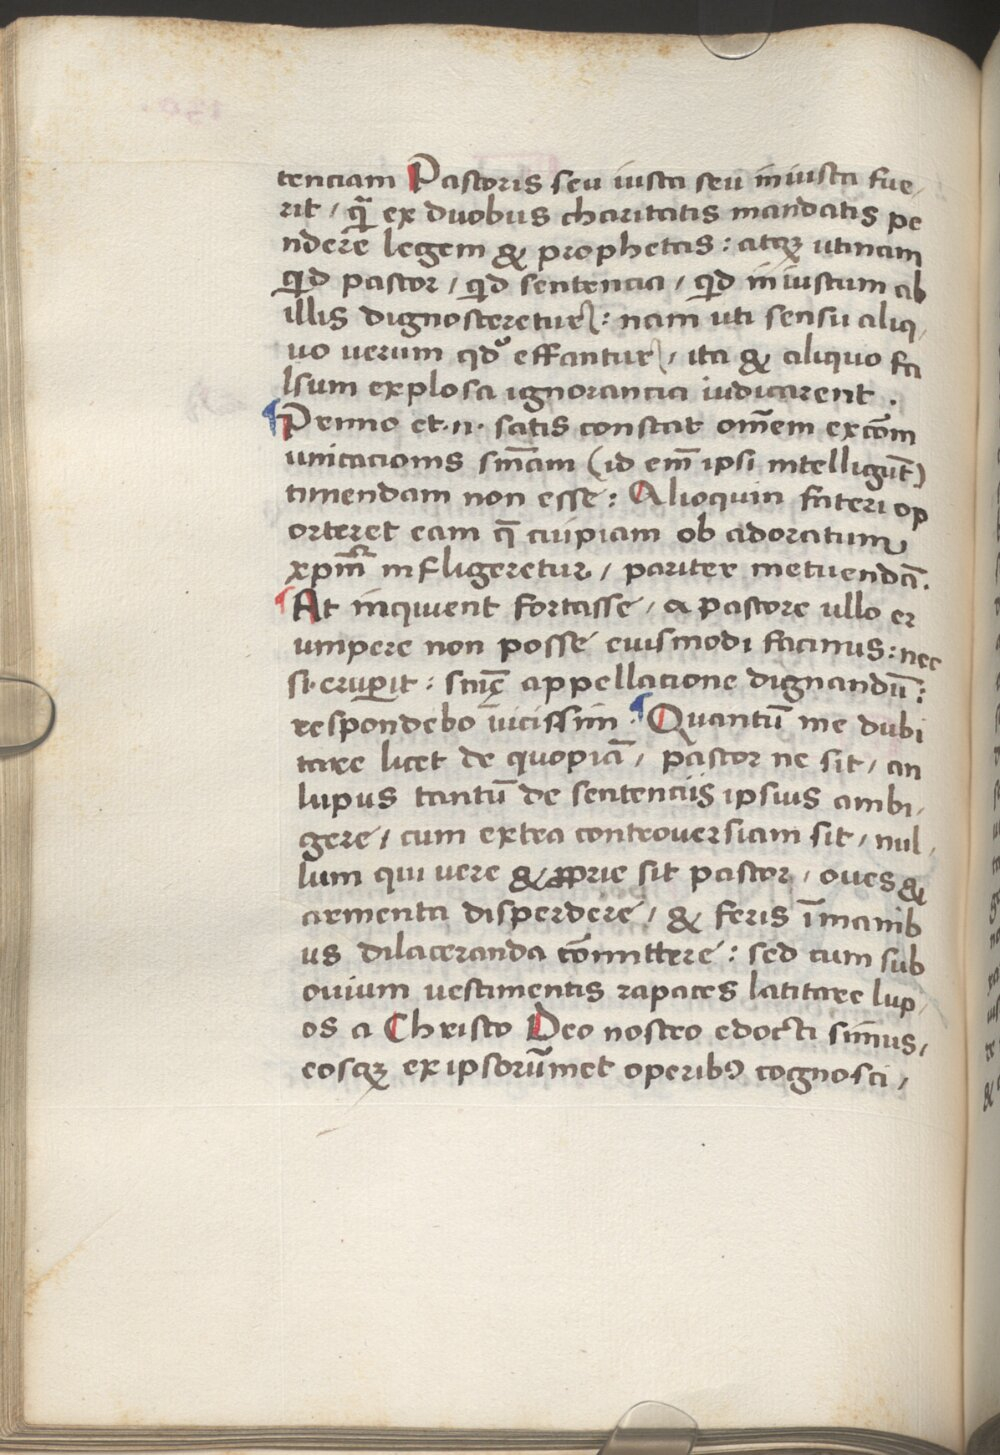 tenciam Pastoris seu iusta seu iniusta fue,
rit / qᷓ ex duobus charitatis mandatis pe
ndere legem & prophetas : atqꝫ utinam
qͥd pastor / qͥd sentencia / qͥd iniustum ab
illis dignosceretur : nam uti sensu aliq,
uo uerum qdͦ effantur / ita & aliquo fa
lsum explosa ignorancia iudicarent .
¶ Primo et .n. satis constat om̄em excōm
unicacionis sn̄iam (id em̄ ipsi intelligūt)
timendam non esse : Alioquin fateri op
orteret eam q̄ cuipiam ob adoratum
xpm̄ infligeretur / pariter metuendā.
¶ At inquient fortasse / a pastore ullo er
umpere non posse eiusmodi facinus : nec
si erup̱it : sn̄ię appellacione dignandū :
respondebo ūicissim . ¶ Quantū me dubi
tare licet de quopiā / pastor ne sit / an
lupus tantū de sentenciis ipsius ambi,
gere / cum extra controuersiam sit / nul,
lum qui uere & ꝓprie sit pastor / oues &
armenta disperdere / & feris īmanib
us dilaceranda cōmittere : sed cum sub
ouium uestimentis rapaces latitare lup,
os a Christo Deo nostro edocti simus /
eosqꝫ ex ipsorūmet operibꝰ cognosci /